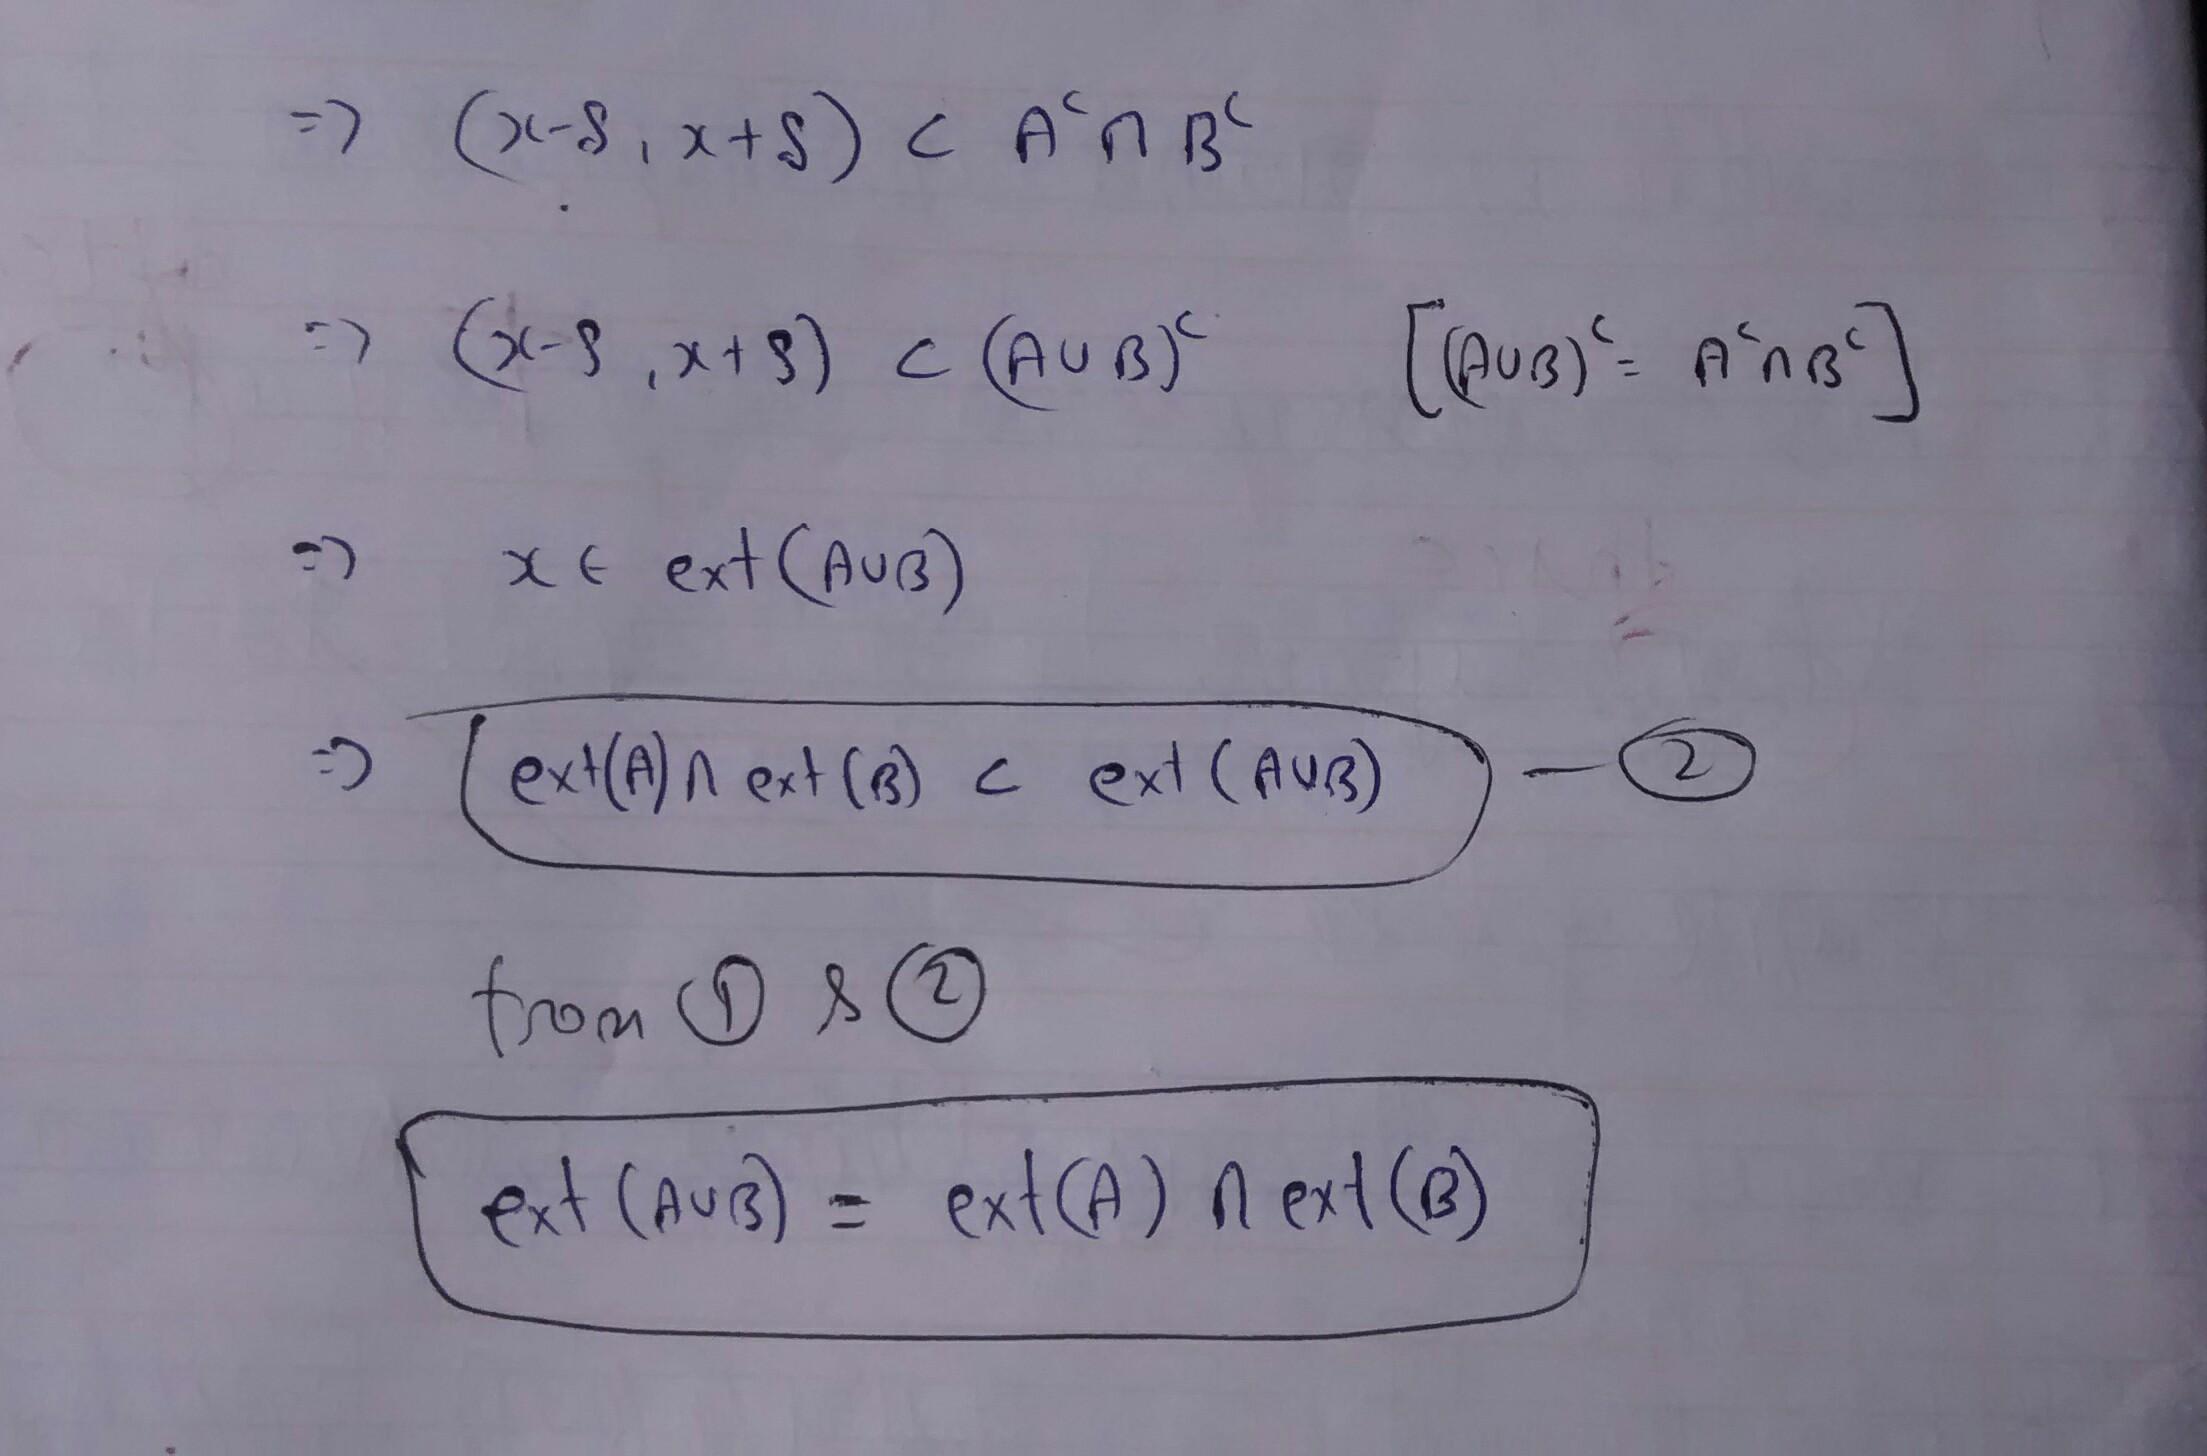 => (x-δ, x+δ) ⊂ Aᶜ∩Bᶜ
=> (x-δ, x+δ) ⊂ (A∪B)ᶜ [(A∪B)ᶜ = Aᶜ∩Bᶜ]
=> x ∈ ext(A∪B)
=> ext(A)∩ext(B) ⊂ ext(A∪B) — ②
from ① & ②
ext(A∪B) = ext(A)∩ext(B)